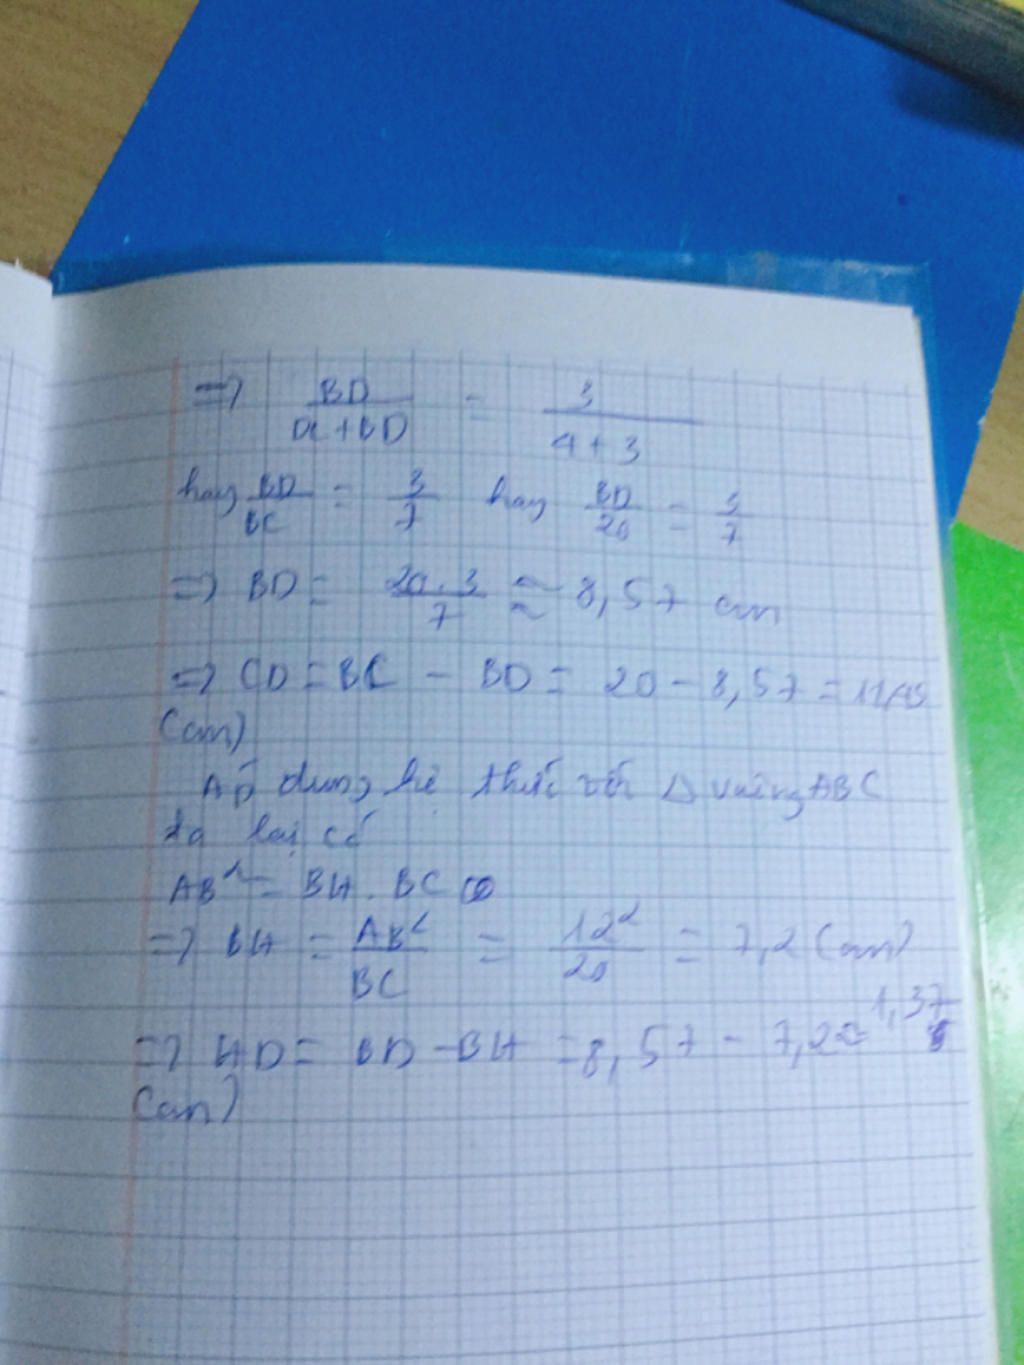 => BD/(DC+BD) = 3/(4+3)
hay BD/BC = 3/7 hay BD/20 = 3/7
=> BD = 20.3/7 ≈ 8,57 cm
=> CD = BC - BD = 20 - 8,57 = 11,43
(cm)
Áp dụng hệ thức với Δ vuông ABC
ta lại có
AB² = BH . BC
=> BH = AB²/BC = 12²/20 = 7,2 (cm)
=> HD = BD - BH = 8,57 - 7,2 = 1,37
(cm)